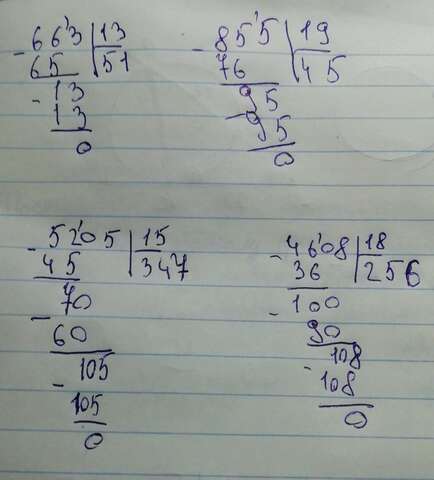 - 663 | 13
65 | 51
- 13
13
0
- 855 | 19
76 | 45
- 95
95
0
- 5205 | 15
45 | 347
- 70
60
- 105
105
0
- 4608 | 18
36 | 256
- 100
90
- 108
108
0